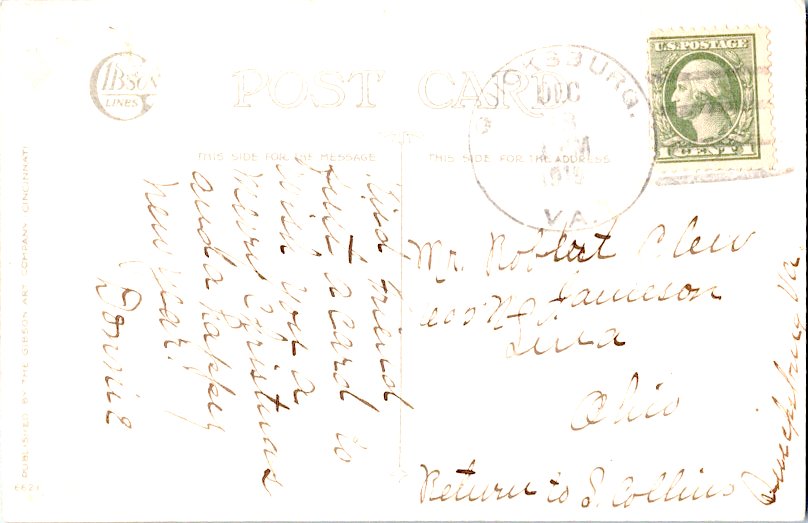 GIBSON
LINES
POST CARD
THIS SIDE FOR THE MESSAGE
THIS SIDE FOR THE ADDRESS
U.S. POSTAGE
1 CENT 1
KSBURG.
DEC
VA.
friend
Just a card to
wish you a
Merry Christmas
and a happy
New Year.
Mr. Robert
Jameson
Lima
Ohio
Return to S. Collins
Va
PUBLISHED BY THE GIBSON ART COMPANY CINCINNATI